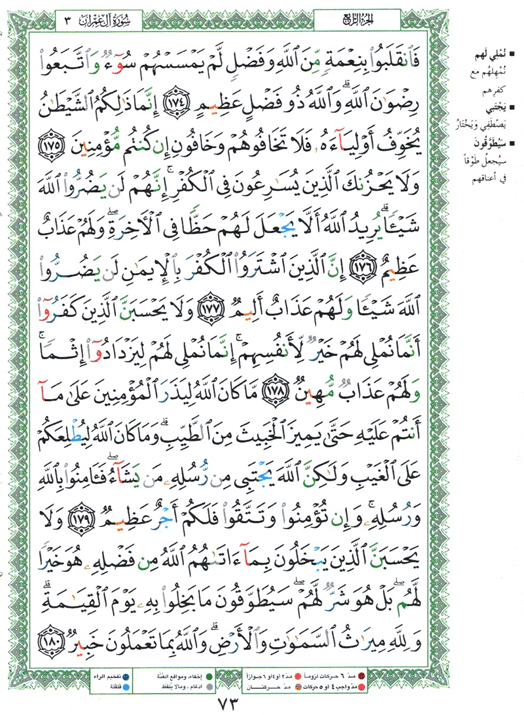 الجزء الرابع
سورة آل عمران ٣
فَٱنقَلَبُوا۟ بِنِعْمَةٍ مِّنَ ٱللَّهِ وَفَضْلٍ لَّمْ يَمْسَسْهُمْ سُوٓءٌ وَٱتَّبَعُوا۟
رِضْوَٰنَ ٱللَّهِ ۗ وَٱللَّهُ ذُو فَضْلٍ عَظِيمٍ ﴿١٧٤﴾ إِنَّمَا ذَٰلِكُمُ ٱلشَّيْطَٰنُ
يُخَوِّفُ أَوْلِيَآءَهُۥ فَلَا تَخَافُوهُمْ وَخَافُونِ إِن كُنتُم مُّؤْمِنِينَ ﴿١٧٥﴾
وَلَا يَحْزُنكَ ٱلَّذِينَ يُسَٰرِعُونَ فِى ٱلْكُفْرِ ۚ إِنَّهُمْ لَن يَضُرُّوا۟ ٱللَّهَ
شَيْـًٔا ۗ يُرِيدُ ٱللَّهُ أَلَّا يَجْعَلَ لَهُمْ حَظًّا فِى ٱلْءَاخِرَةِ ۖ وَلَهُمْ عَذَابٌ
عَظِيمٌ ﴿١٧٦﴾ إِنَّ ٱلَّذِينَ ٱشْتَرَوُا۟ ٱلْكُفْرَ بِٱلْإِيمَٰنِ لَن يَضُرُّوا۟
ٱللَّهَ شَيْـًٔا وَلَهُمْ عَذَابٌ أَلِيمٌ ﴿١٧٧﴾ وَلَا يَحْسَبَنَّ ٱلَّذِينَ كَفَرُوٓا۟
أَنَّمَا نُمْلِى لَهُمْ خَيْرٌ لِّأَنفُسِهِمْ ۚ إِنَّمَا نُمْلِى لَهُمْ لِيَزْدَادُوٓا۟ إِثْمًا ۚ
وَلَهُمْ عَذَابٌ مُّهِينٌ ﴿١٧٨﴾ مَّا كَانَ ٱللَّهُ لِيَذَرَ ٱلْمُؤْمِنِينَ عَلَىٰ مَآ
أَنتُمْ عَلَيْهِ حَتَّىٰ يَمِيزَ ٱلْخَبِيثَ مِنَ ٱلطَّيِّبِ ۗ وَمَا كَانَ ٱللَّهُ لِيُطْلِعَكُمْ
عَلَى ٱلْغَيْبِ وَلَٰكِنَّ ٱللَّهَ يَجْتَبِى مِن رُّسُلِهِۦ مَن يَشَآءُ ۖ فَـَٔامِنُوا۟ بِٱللَّهِ
وَرُسُلِهِۦ ۚ وَإِن تُؤْمِنُوا۟ وَتَتَّقُوا۟ فَلَكُمْ أَجْرٌ عَظِيمٌ ﴿١٧٩﴾ وَلَا
يَحْسَبَنَّ ٱلَّذِينَ يَبْخَلُونَ بِمَآ ءَاتَىٰهُمُ ٱللَّهُ مِن فَضْلِهِۦ هُوَ خَيْرًا
لَّهُم ۖ بَلْ هُوَ شَرٌّ لَّهُمْ ۖ سَيُطَوَّقُونَ مَا بَخِلُوا۟ بِهِۦ يَوْمَ ٱلْقِيَٰمَةِ ۗ
وَلِلَّهِ مِيرَٰثُ ٱلسَّمَٰوَٰتِ وَٱلْأَرْضِ ۗ وَٱللَّهُ بِمَا تَعْمَلُونَ خَبِيرٌ ﴿١٨٠﴾
■ نُمْلِي لَهم
نُمْهِلُهم مع
كفرهم
■ يَجْتَبي
يَصْطَفِي ويَخْتَارُ
■ سَيُطَوَّقُونَ
سيُجعلُ طَوْقاً
في أعناقهم
مدّ ٦ حركات لزوماً ● مدّ ٢ أو ٤ أو ٦ جوازاً
مدّ واجب ٤ أو ٥ حركات ● مدّ حركتان
إخفاء، ومواقع الغنّة
إدغام، وما لا يلفظ
تفخيم الراء
قلقلة
٧٣